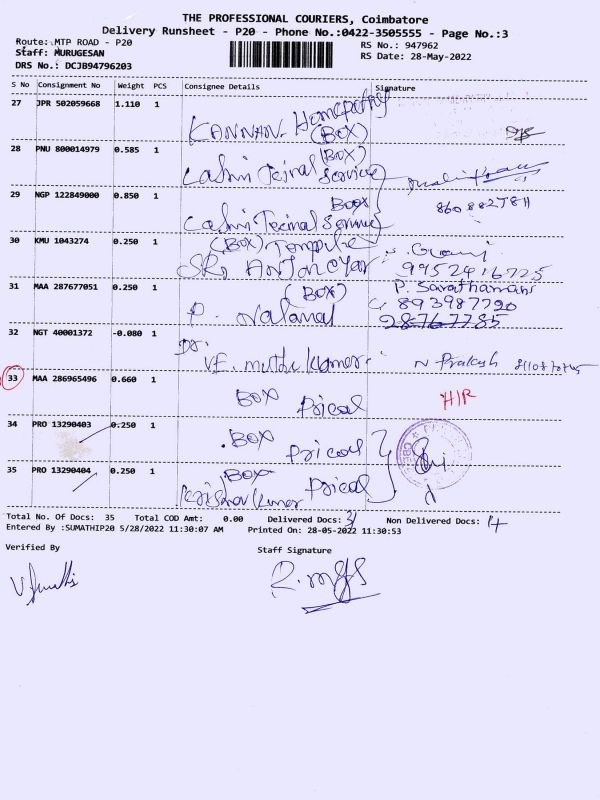 THE PROFESSIONAL COURIERS, Coimbatore
Delivery Runsheet - P20 - Phone No.:0422-3505555 - Page No.:3
Route: MTP ROAD - P20
RS No.: 947962
Staff: MURUGESAN
RS Date: 28-May-2022
DRS No.: DCJB94796203
S No Consignment No Weight PCS Consignee Details Signature
27 JPR 502059668 1.110 1
KANNAN. Homepathy
(BOX)
28 PNU 800014979 0.585 1
(BOX)
Service
29 NGP 122849000 0.850 1
BOOX
8608827811
30 KMU 1043274 0.250 1
(BOX)
SRI
9952416725
31 MAA 287677051 0.250 1
(BOX)
P.
P. Sarathamani
893987720
28767785
32 NGT 40001372 -0.080 1
Dr.
VE. muthu kumar
N Prakash
33 MAA 286965496 0.660 1
BOX Prical
H/R
34 PRO 13290403 0.250 1
BOX Pricol
35 PRO 13290404 0.250 1
BOX
Krishna kumar Prical
Total No. Of Docs: 35 Total COD Amt: 0.00 Delivered Docs: 31 Non Delivered Docs: 4
Entered By :SUMATHIP20 5/28/2022 11:30:07 AM Printed On: 28-05-2022 11:30:53
Verified By
Staff Signature